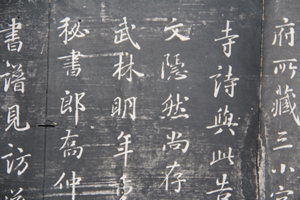 府所藏三小字
寺詩與此告
文隱然尚存
武林明年
秘書郎喬仲
書譜見訪